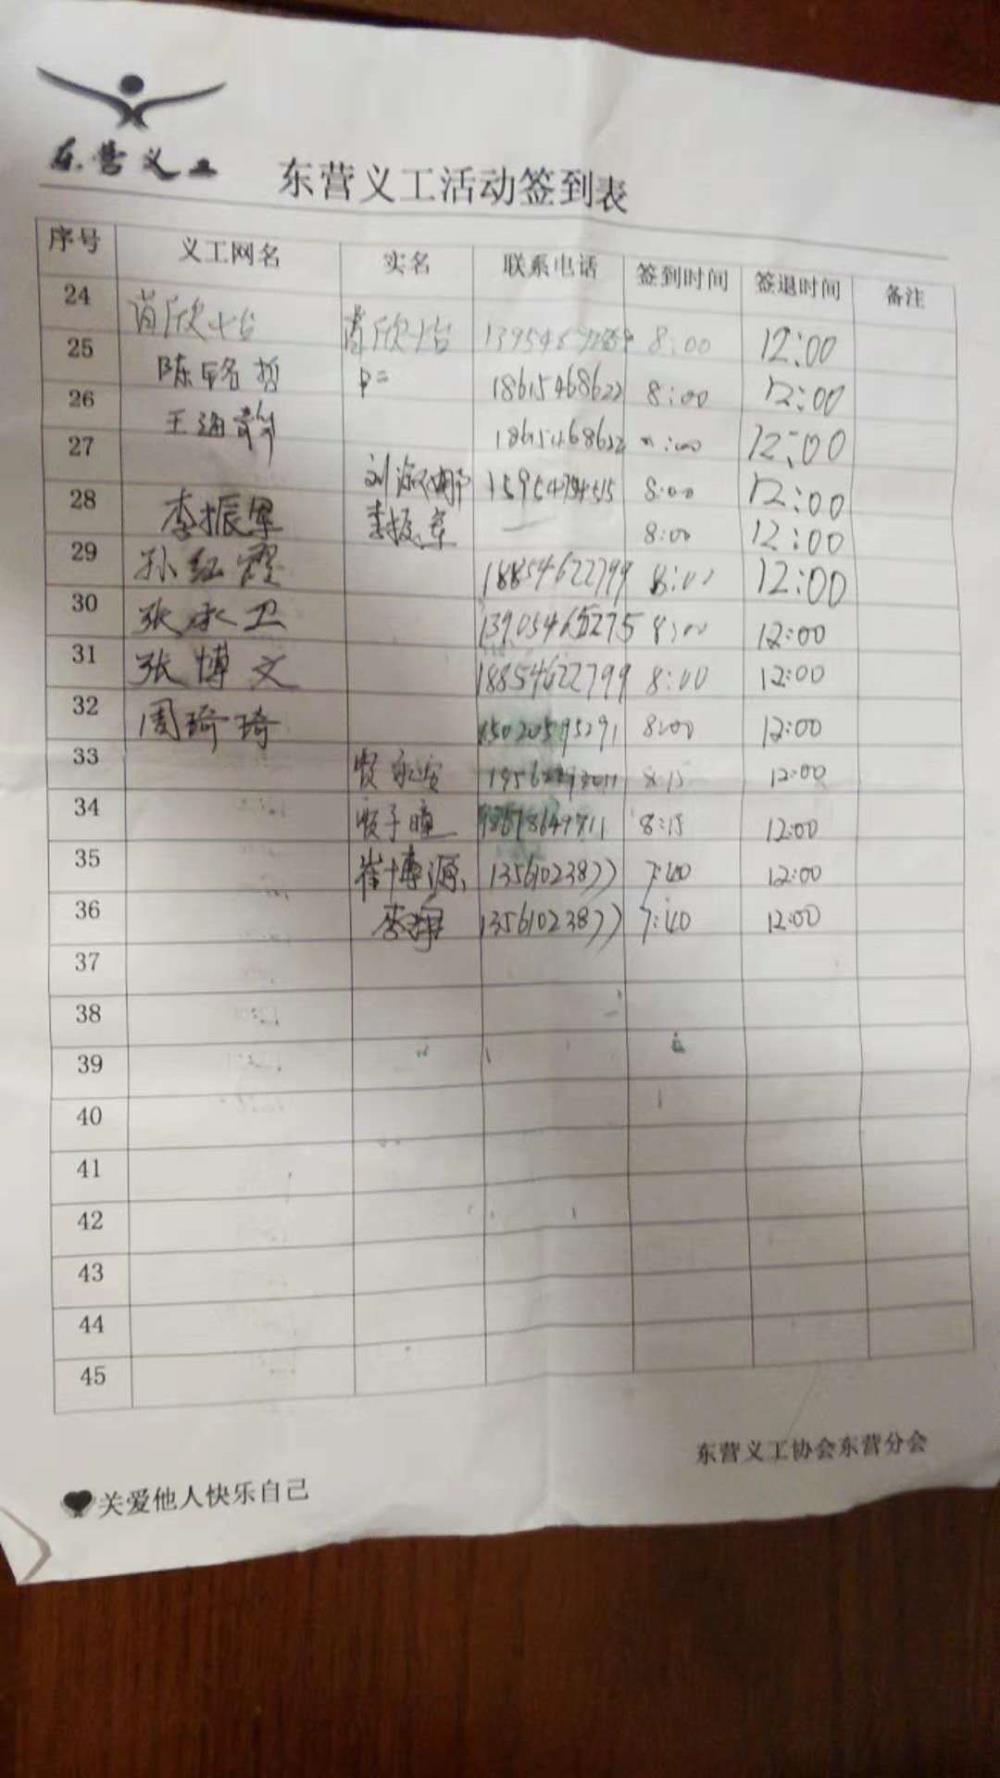 东营义工
东营义工活动签到表
序号 义工网名 实名 联系电话 签到时间 签退时间 备注
24 欣 欣 8:00 12:00
25 陈铭哲 18615468622 8:00 12:00
26 王海 18615468622 12:00
27 刘 8:00 12:00
28 李振军 李振军 8:00 12:00
29 孙红霞 18854622799 12:00
30 张永卫 13905465275 12:00
31 张博文 18854622799 8:00 12:00
32 周琦琦 15020595291 8:00 12:00
33 8:15 12:00
34 8:15 12:00
35 崔博源 13561023877 7:40 12:00
36 13561023877 7:40 12:00
37
38
39
40
41
42
43
44
45
东营义工协会东营分会
关爱他人快乐自己